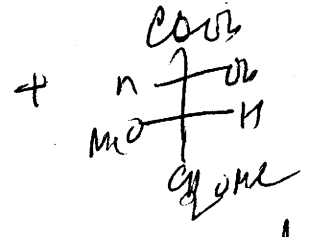 COOH
+ H OH
MeO H
CH₂OMe